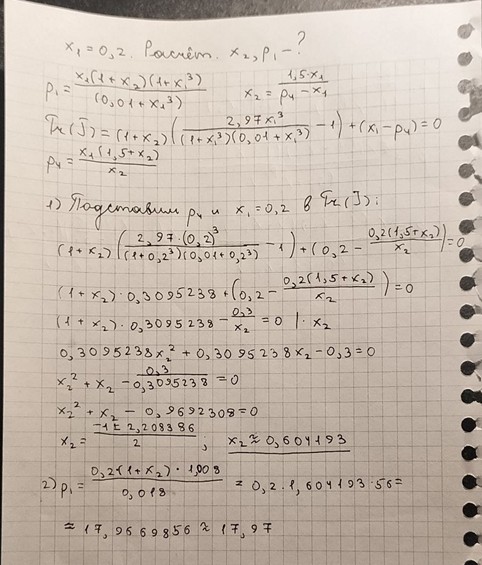 x₁ = 0,2. Расчёт. x₂, p₁ - ?
p₁ = x₁(1+x₂)(1+x₁³) / (0,01+x₁³)    x₂ = 1,5·x₁ / (p₄ - x₁)
Tr(J) = (1+x₂) (2,97x₁³ / ((1+x₁³)(0,01+x₁³)) - 1) + (x₁ - p₄) = 0
p₄ = x₁(1,5+x₂) / x₂
1) Подставим p₄ и x₁ = 0,2 в Tr(J):
(1+x₂) (2,97·(0,2)³ / ((1+0,2³)(0,01+0,2³)) - 1) + (0,2 - 0,2(1,5+x₂) / x₂) = 0
(1+x₂)·0,3095238 + (0,2 - 0,2(1,5+x₂) / x₂) = 0
(1+x₂)·0,3095238 - 0,3 / x₂ = 0 |·x₂
0,3095238x₂² + 0,3095238x₂ - 0,3 = 0
x₂² + x₂ - 0,3 / 0,3095238 = 0
x₂² + x₂ - 0,9692308 = 0
x₂ = (-1 ± 2,208386) / 2 ; x₂ ≈ 0,604193
2) p₁ = 0,2(1+x₂)·1,008 / 0,018 = 0,2·1,604193·56 =
≈ 17,9669856 ≈ 17,97